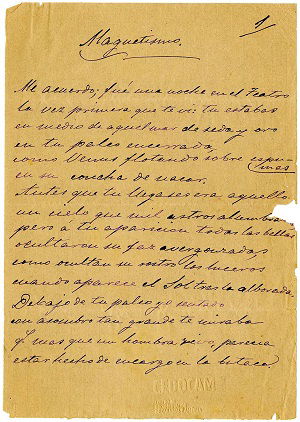 1
Magnetismo.
Me acuerdo; fué una noche en el Teatro
la vez primera que te vi: tu estabas
en medio de aquel mar de seda y oro
en tu palco encerrada,
como Venus flotando sobre espu-
mas
en su concha de nacar.
Antes que tu llegases era aquello
un cielo que mil astros alumbra
pero a tu aparicion todas las bellas
ocultaron su faz avergonzadas
como ocultan su rostro los luceros
cuando aparece el Sol tras la alborada.
Debajo de tu palco yo sentado
con asombro tan grande te miraba
q. mas que un hombre vivo, parecia
estar hecho de encargo en la butaca.